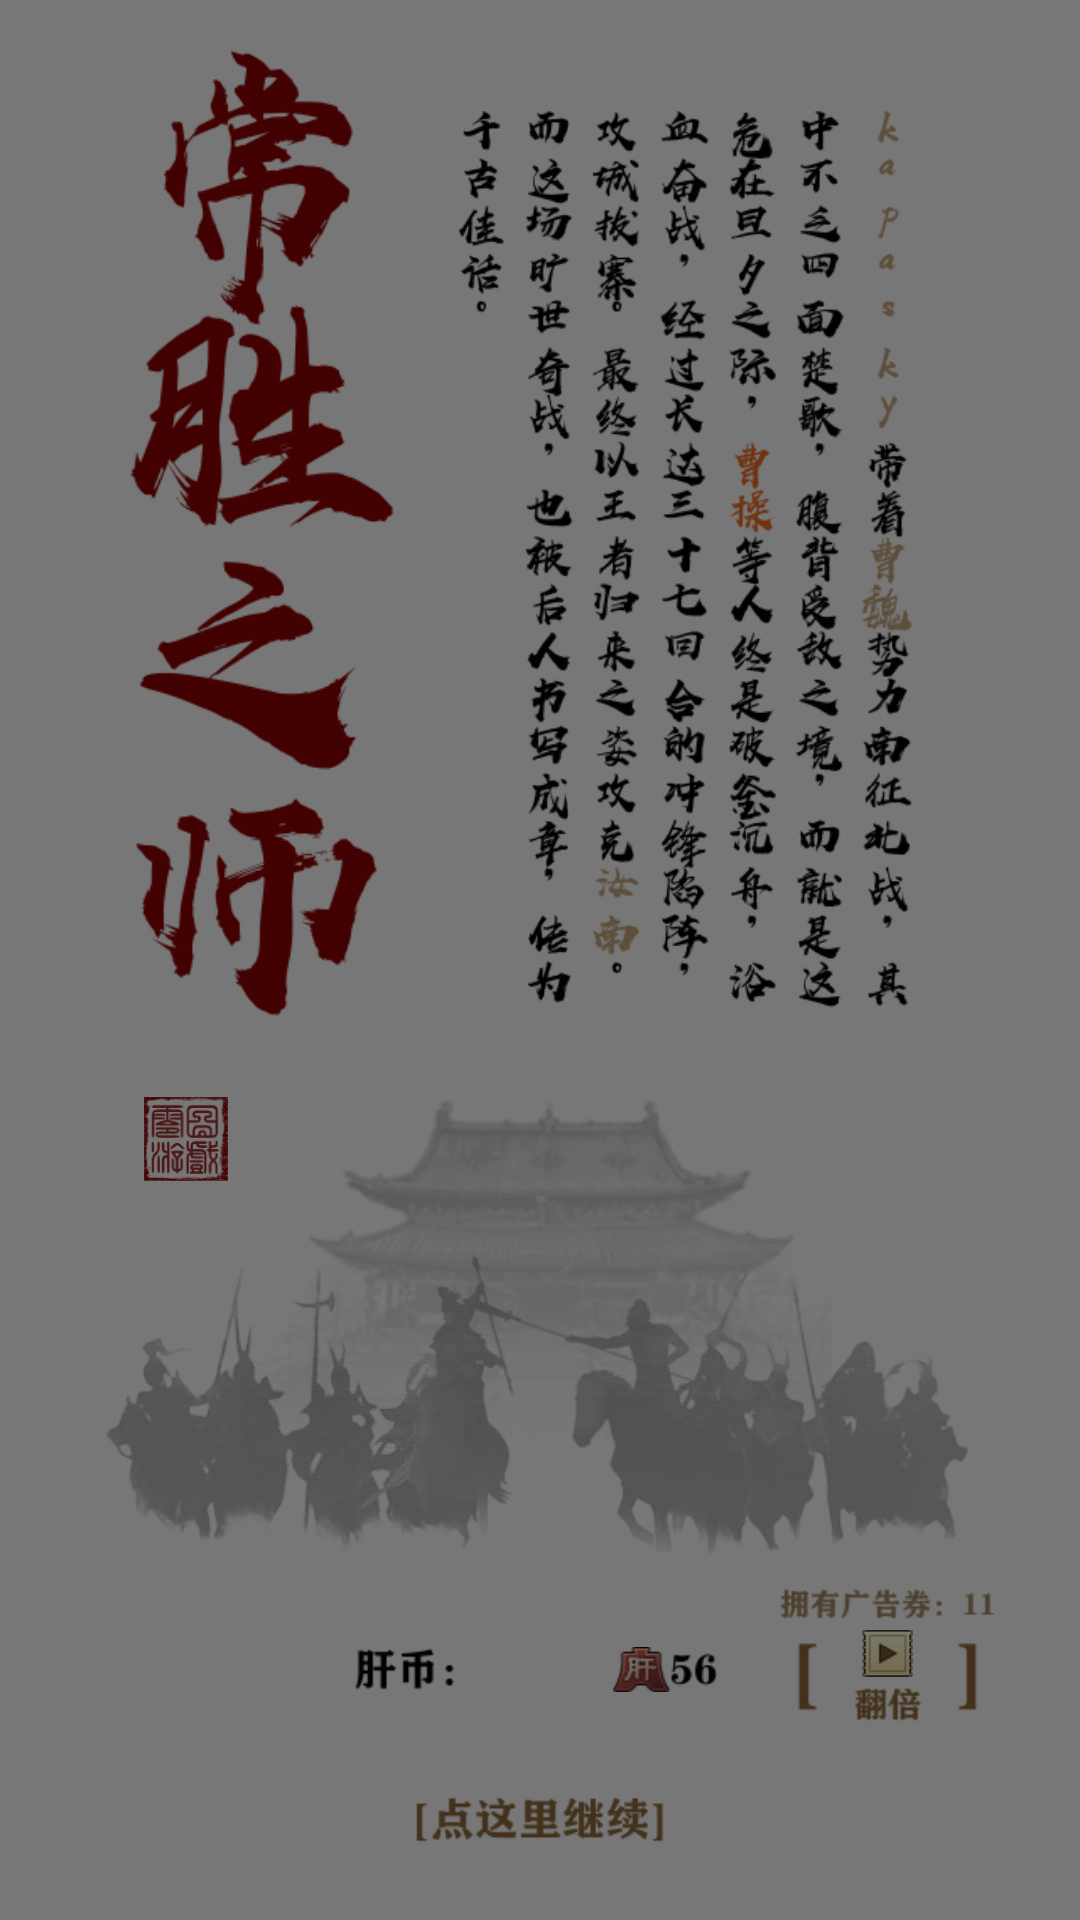 常胜之师
kapasky带着曹魏势力南征北战，其
中不乏四面楚歌，腹背受敌之境，而就是这
危在旦夕之际，曹操等人终是破釜沉舟，浴
血奋战，经过长达三十七回合的冲锋陷阵，
攻城拔寨。最终以王者归来之姿攻克汝南。
而这场旷世奇战，也被后人书写成章，传为
千古佳话。
拥有广告券：11
肝币：
肝56
[翻倍]
[点这里继续]